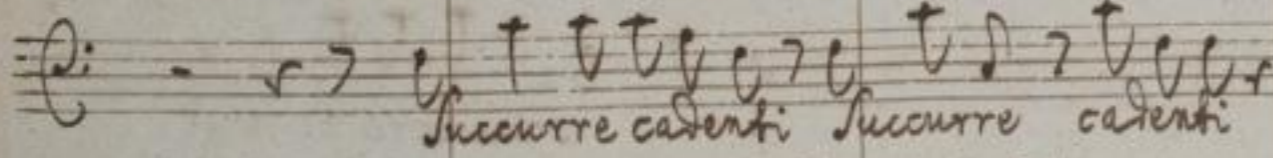 Succurre cadenti Succurre cadenti